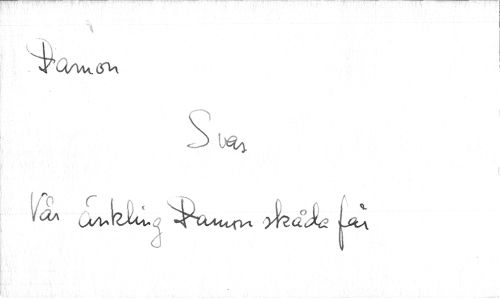 Damon
Svar
Vår änkling Damon skåda får